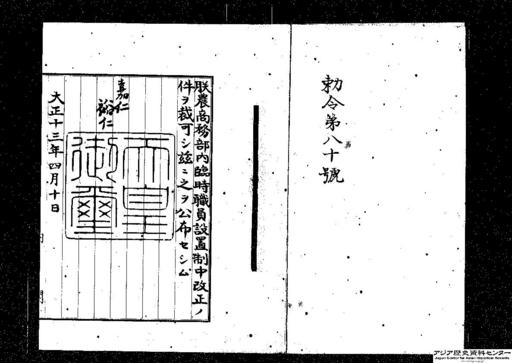 勅令第八十號
朕農商務部内臨時職員設置制中改正ノ
件ヲ裁可シ茲ニ之ヲ公布セシム
嘉仁
裕仁
天皇
御璽
大正十三年四月十日
アジア歴史資料センター
Japan Center for Asian Historical Records